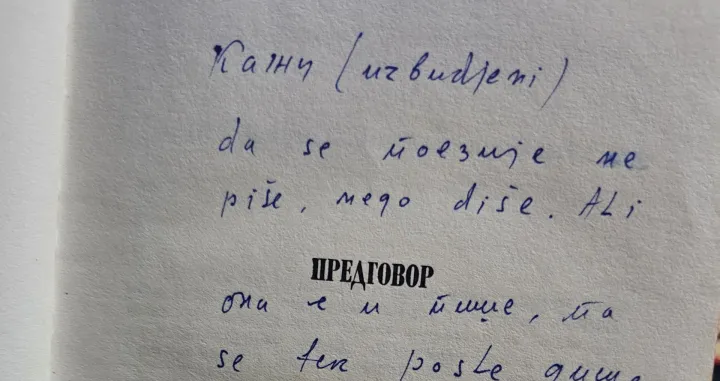 Кажу (uzbudjeni)
da se поезије не
piše, nego diše. ALi
ПРЕДГОВОР
она е и пише, па
se tek posle дише